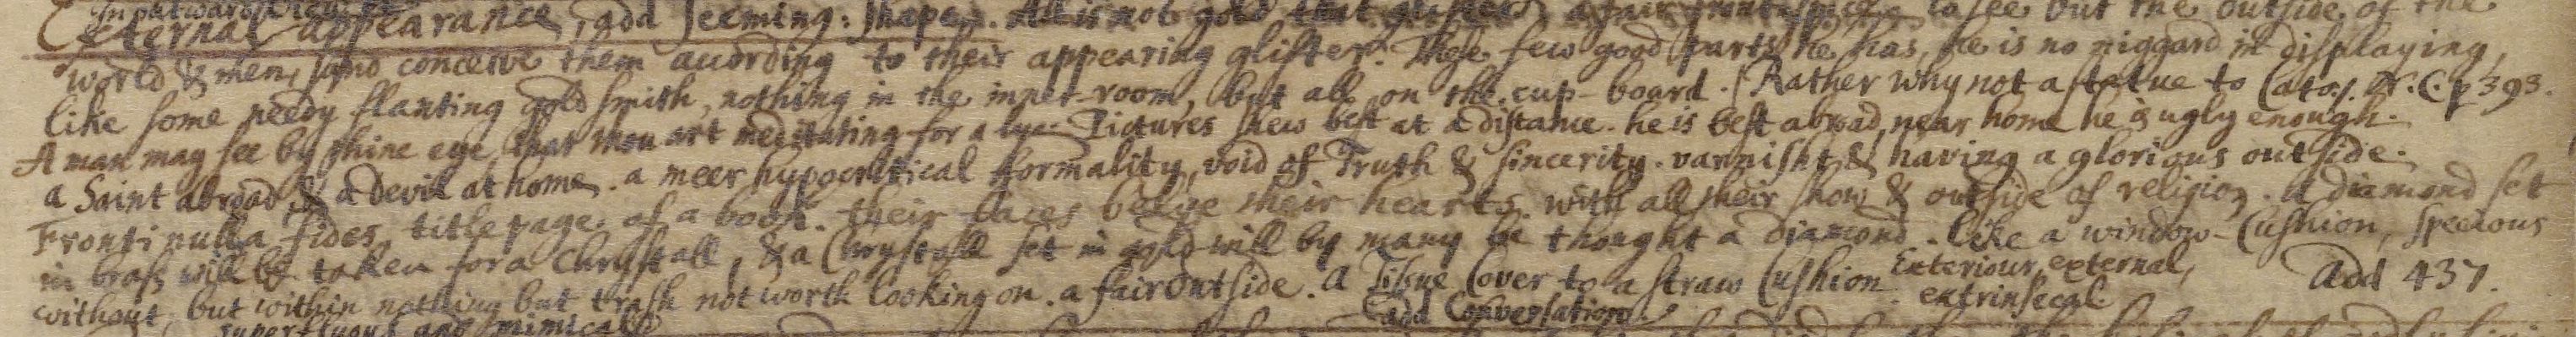 In outward view
External appearance, add Seeming: Shape. All is not gold that glisters, a fair frontispiece. to see but the outside of the
world & men, and conceive them according to their appearing glister. These few good parts he has, he is no niggard in displaying,
like some needy flanting gold smith, nothing in the inner-room, but all on the cup-board. Rather why not a statue to Cato. p 393.
A man may see by thine eye, that thou art meditating for a lye. Pictures shew best at a distance. he is best abroad, near home he is ugly enough.
a Saint abroad & a devil at home. a meer hypocritical formality, void of Truth & sincerity. varnisht & having a glorious outside.
Fronti nulla fides, title page of a book. their faces belye their hearts. with all their show & outside of religion. a diamond set
in brass will be taken for a Chrystall, & a Chrystall set in gold will by many be thought a diamond. like a window-Cushion, specious
without, but within nothing but trash not worth looking on. a fair outside. A Tissue Cover to a straw Cushion. Exteriour, external, add 437.
extrinsecal.
superfluous and mimicall add Conversation